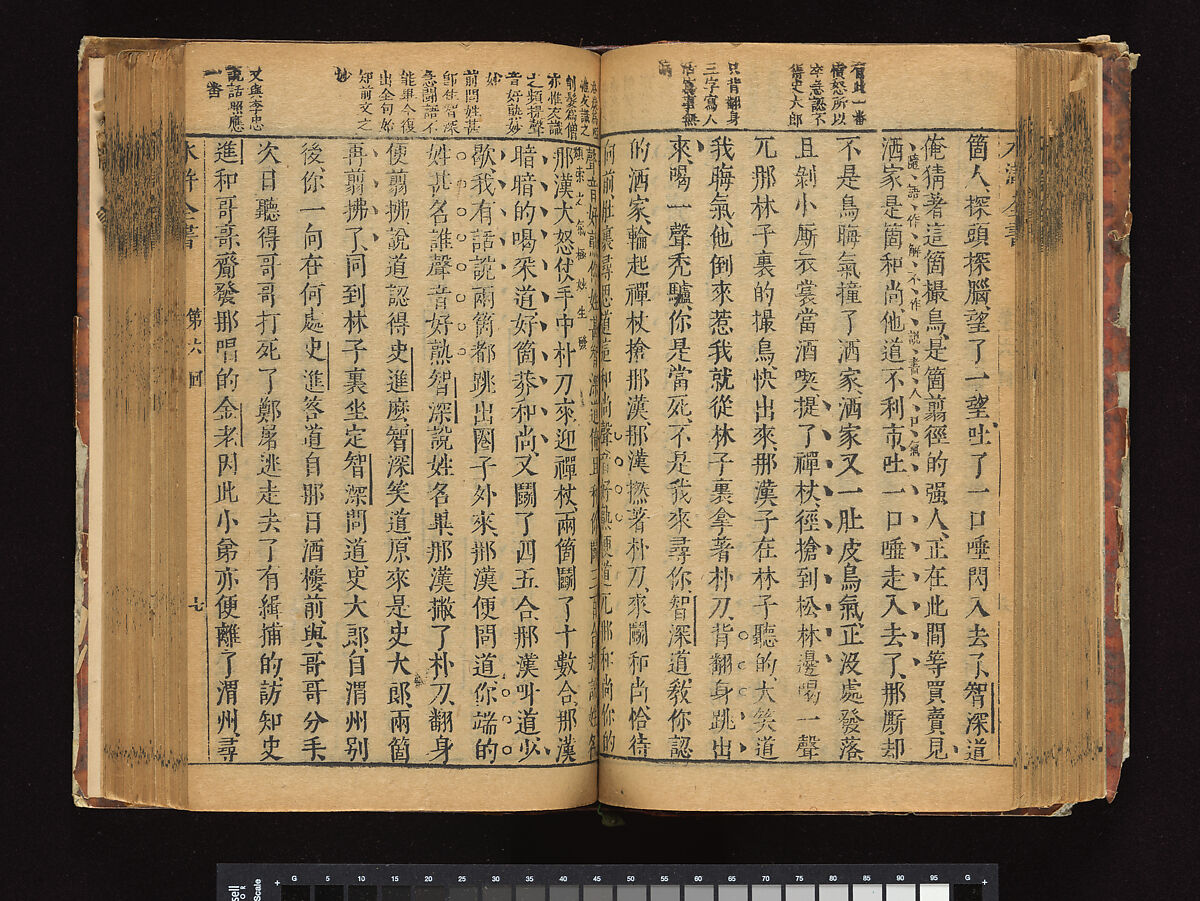 水滸全書
有此一番
憤怒所以
卒急認不
得史大郎
只背翻身
三字寫人
箇人探頭探腦望了一望吐了一口唾閃入去了智深道
俺猜著這箇撮鳥是箇翦徑的强人正在此間等買賣見
隨語作解不作說書人口氣
洒家是箇和尚他道不利市吐一口唾走入去了那厮却
不是鳥晦氣撞了洒家洒家又一肚皮鳥氣正没處發落
且剝小厮衣裳當酒喫提了禪杖徑搶到松林邊喝一聲
兀那林子裏的撮鳥快出來那漢子在林子聽的大笑道
我晦氣他倒來惹我就從林子裏拿著朴刀背翻身跳出
來喝一聲秃驢你是當死不是我來尋你智深道教你認
的洒家輪起禪杖搶那漢那漢撚著朴刀來鬭和尚恰待
向前肚裏尋思道這和尚聲音好熟便道兀那和尚你的
剃髮爲僧
亦惟友識
之頻提聲
音好熟妙
妙
前問姓甚
即使智深
急鬭語不
能畢今復
出全句始
知前文之
妙
又與李忠
說話照應
一番
聲音好熟你姓甚智深道俺且和你鬭三百合却說姓名
那漢大怒仗手中朴刀來迎禪杖兩箇鬭了十數合那漢
暗暗的喝采道好箇莽和尚又鬭了四五合那漢叫道少
歇我有話說兩箇都跳出圈子外來那漢便問道你端的
姓甚名誰聲音好熟智深說姓名畢那漢撇了朴刀翻身
便翦拂說道認得史進麽智深笑道原來是史大郎兩箇
再翦拂了同到林子裏坐定智深問道史大郎自渭州別
後你一向在何處史進答道自那日酒樓前與哥哥分手
次日聽得哥哥打死了鄭屠逃走去了有緝捕的訪知史
進和哥哥齎發那唱的金老因此小弟亦便離了渭州尋
水滸全書 第六回 七